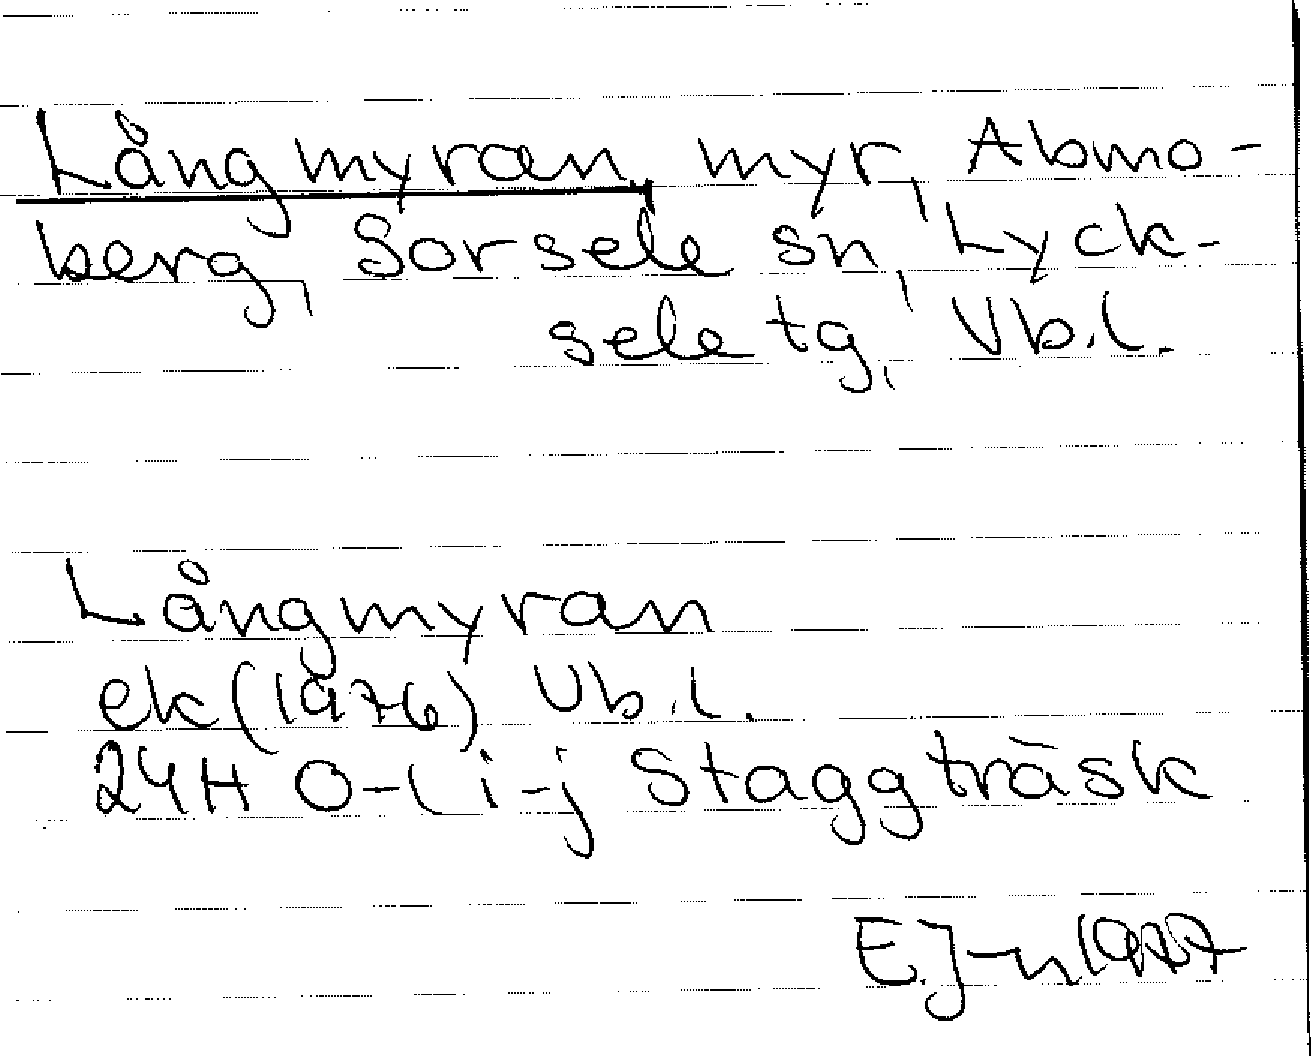 Långmyran, myr, Abmo-
berg, Sorsele sn, Lyck-
sele tg, Vb.l.
Långmyran
ek (1976) Vb.l.
24H 0-1 i-j Staggträsk
E.J-n 1987